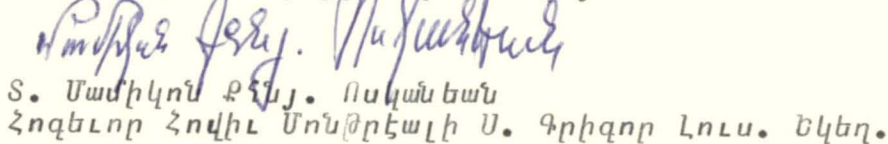 Մամիկոն Քհնյ. Ոսկանեան
Տ. Մամիկոն Քհնյ. Ոսկանեան
Հոգեւոր Հովիւ Մոնթրէալի Ս. Գրիգոր Լուս. Եկեղ.